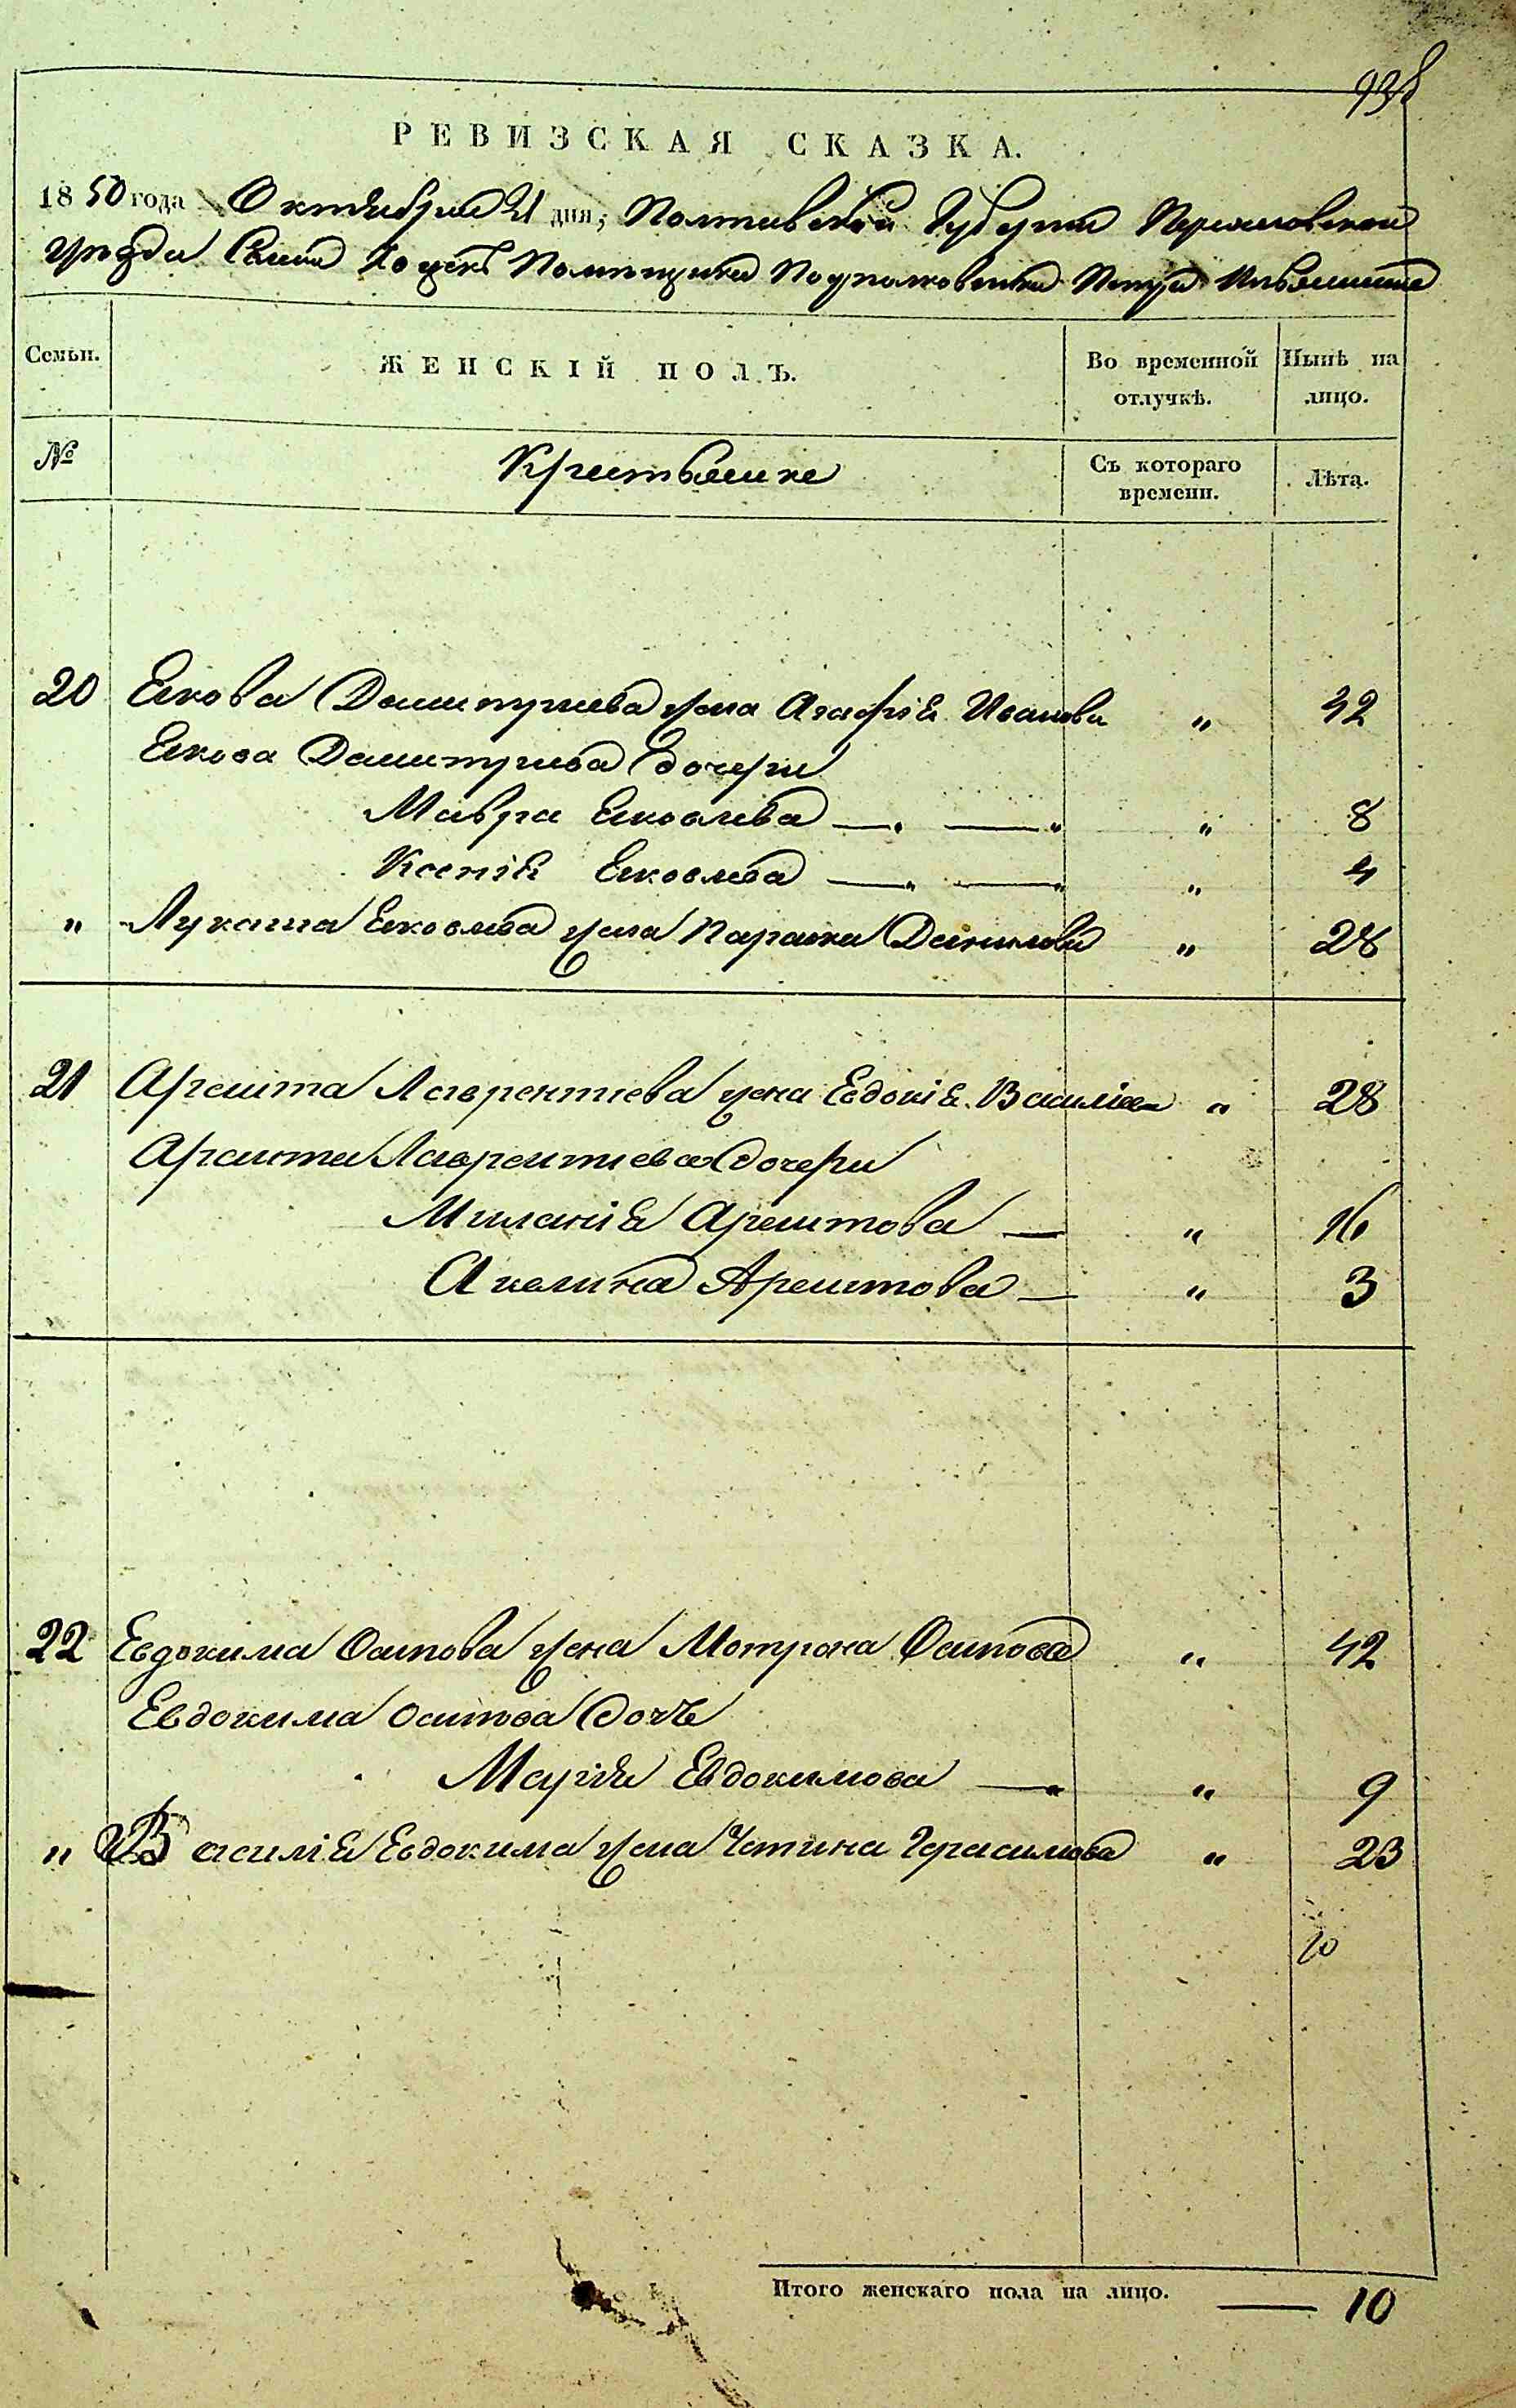 938
РЕВИЗСКАЯ СКАЗКА.
1850 года Октября 21 дня, Полтавской Губернии
уезда Села Помещика Подполковника Петра
Семьи. ЖЕНСКІЙ ПОЛЪ. Во временной отлучкѣ. Нынѣ на лицо.
№ Крестьяне Съ котораго времени. Лѣта.
20 Якова Дмитриева жена Агафія Иванова " 42
Якова Дмитриева дочери
Мавра Яковлева — — " 8
Ксенія Яковлева — — " 4
" Лукаша Яковлева жена Параска Данилова " 28
21 Арешта Лаврентиева жена Евдокія Василіева " 28
Арешта Лаврентиева дочери
Миланія Арештова — " 16
Акелина Арештова — " 3
22 Евдокима Осипова жена Мотрона Осипова " 42
Евдокима Осипова дочь
Марія Евдокимова — " 9
" Василія Евдокима жена Устина Герасимова " 23
10
Итого женскаго пола на лицо. — 10